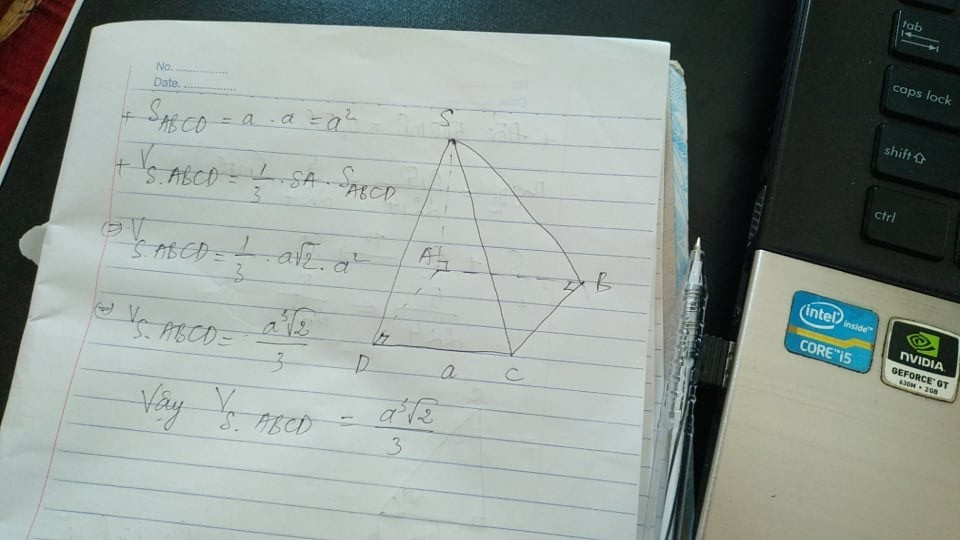 No. ..............
Date. ..............
+ S_ABCD = a . a = a²
+ V_S.ABCD = 1/3 . SA . S_ABCD
⇔ V_S.ABCD = 1/3 . a√2 . a²
⇔ V_S.ABCD = a³√2/3
Vậy V_S.ABCD = a³√2/3
S
A
B
D
a
C
tab
caps lock
shift
ctrl
intel inside™
CORE™ i5
NVIDIA
GEFORCE® GT
630M • 2GB